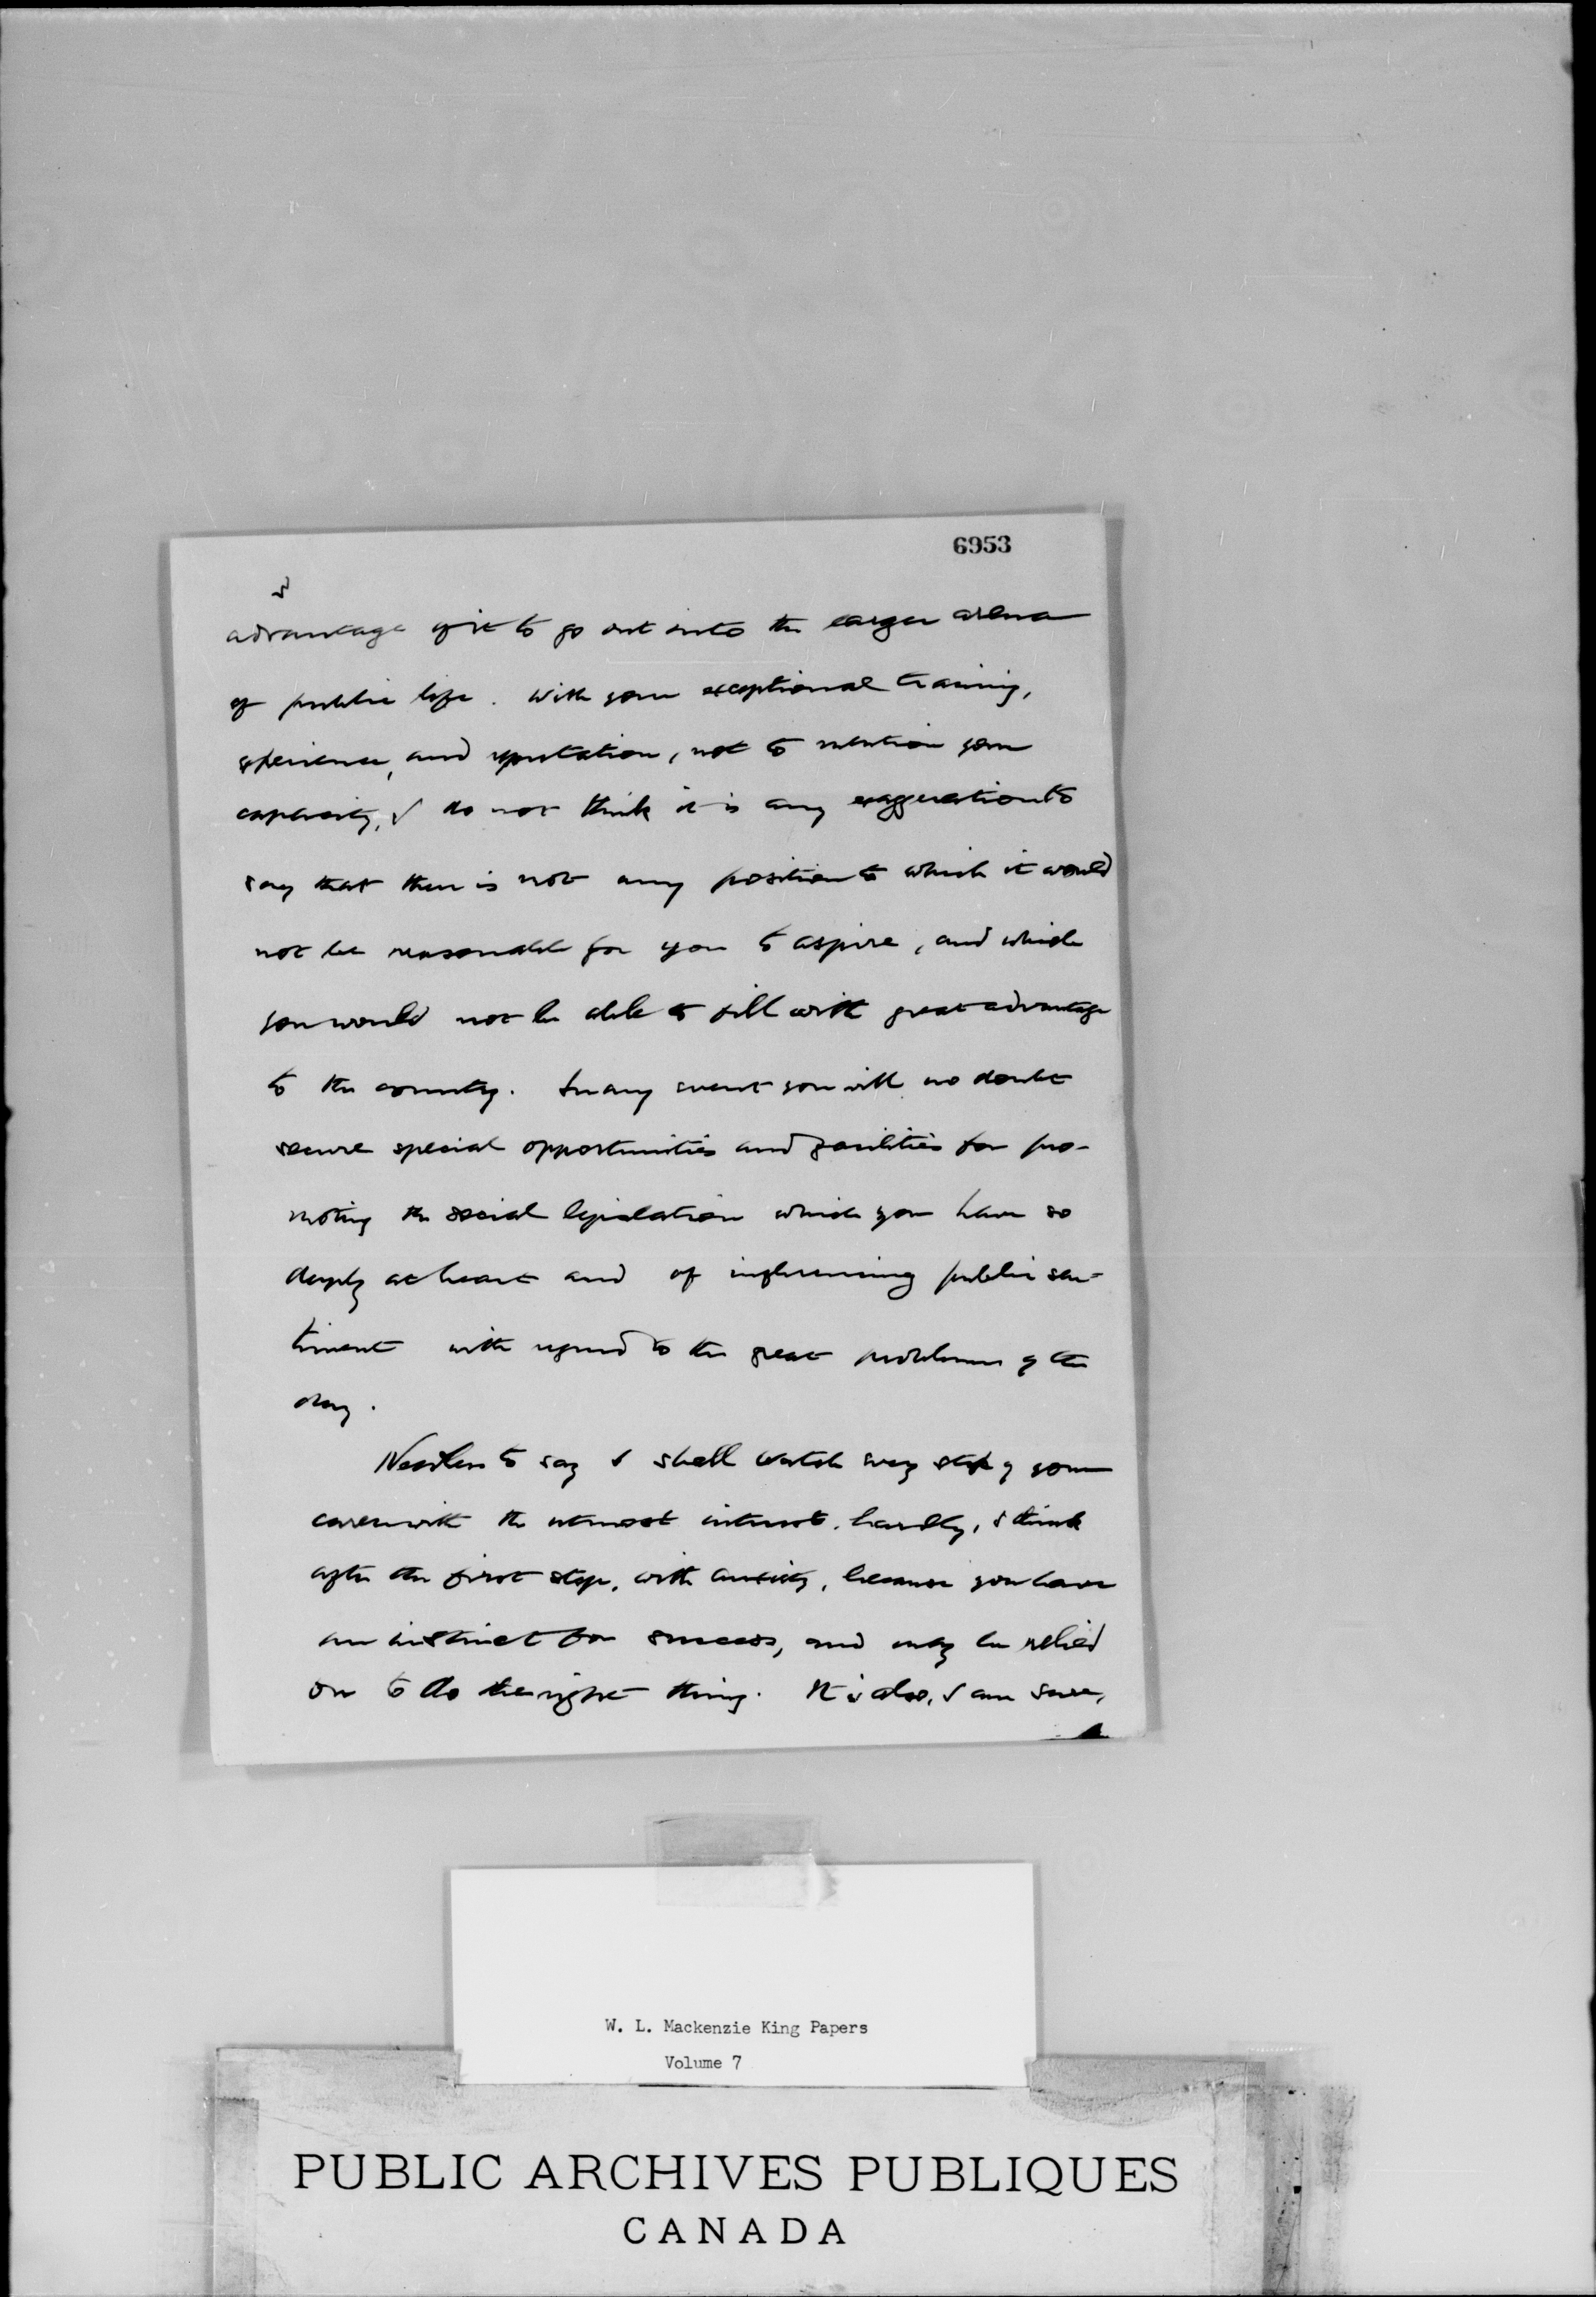 6953
advantage of it to go out into the larger arena
of public life. With your exceptional training,
experience, and reputation, not to mention your
capacity, I do not think it is any exaggeration to
say that there is not any position to which it would
not be reasonable for you to aspire, and which
you would not be able to fill with great advantage
to the country. In any event you will no doubt
secure special opportunities and facilities for pro-
moting the social legislation which you have so
deeply at heart and of influencing public sen-
timent with regard to the great problems of the
day.
Needless to say I shall watch every step of your
career with the utmost interest, hardly, I think
after the first step, with anxiety, because you have
an instinct for success, and may be relied
on to do the right thing. It is also, I am sure,
W. L. Mackenzie King Papers
Volume 7
PUBLIC ARCHIVES PUBLIQUES
CANADA